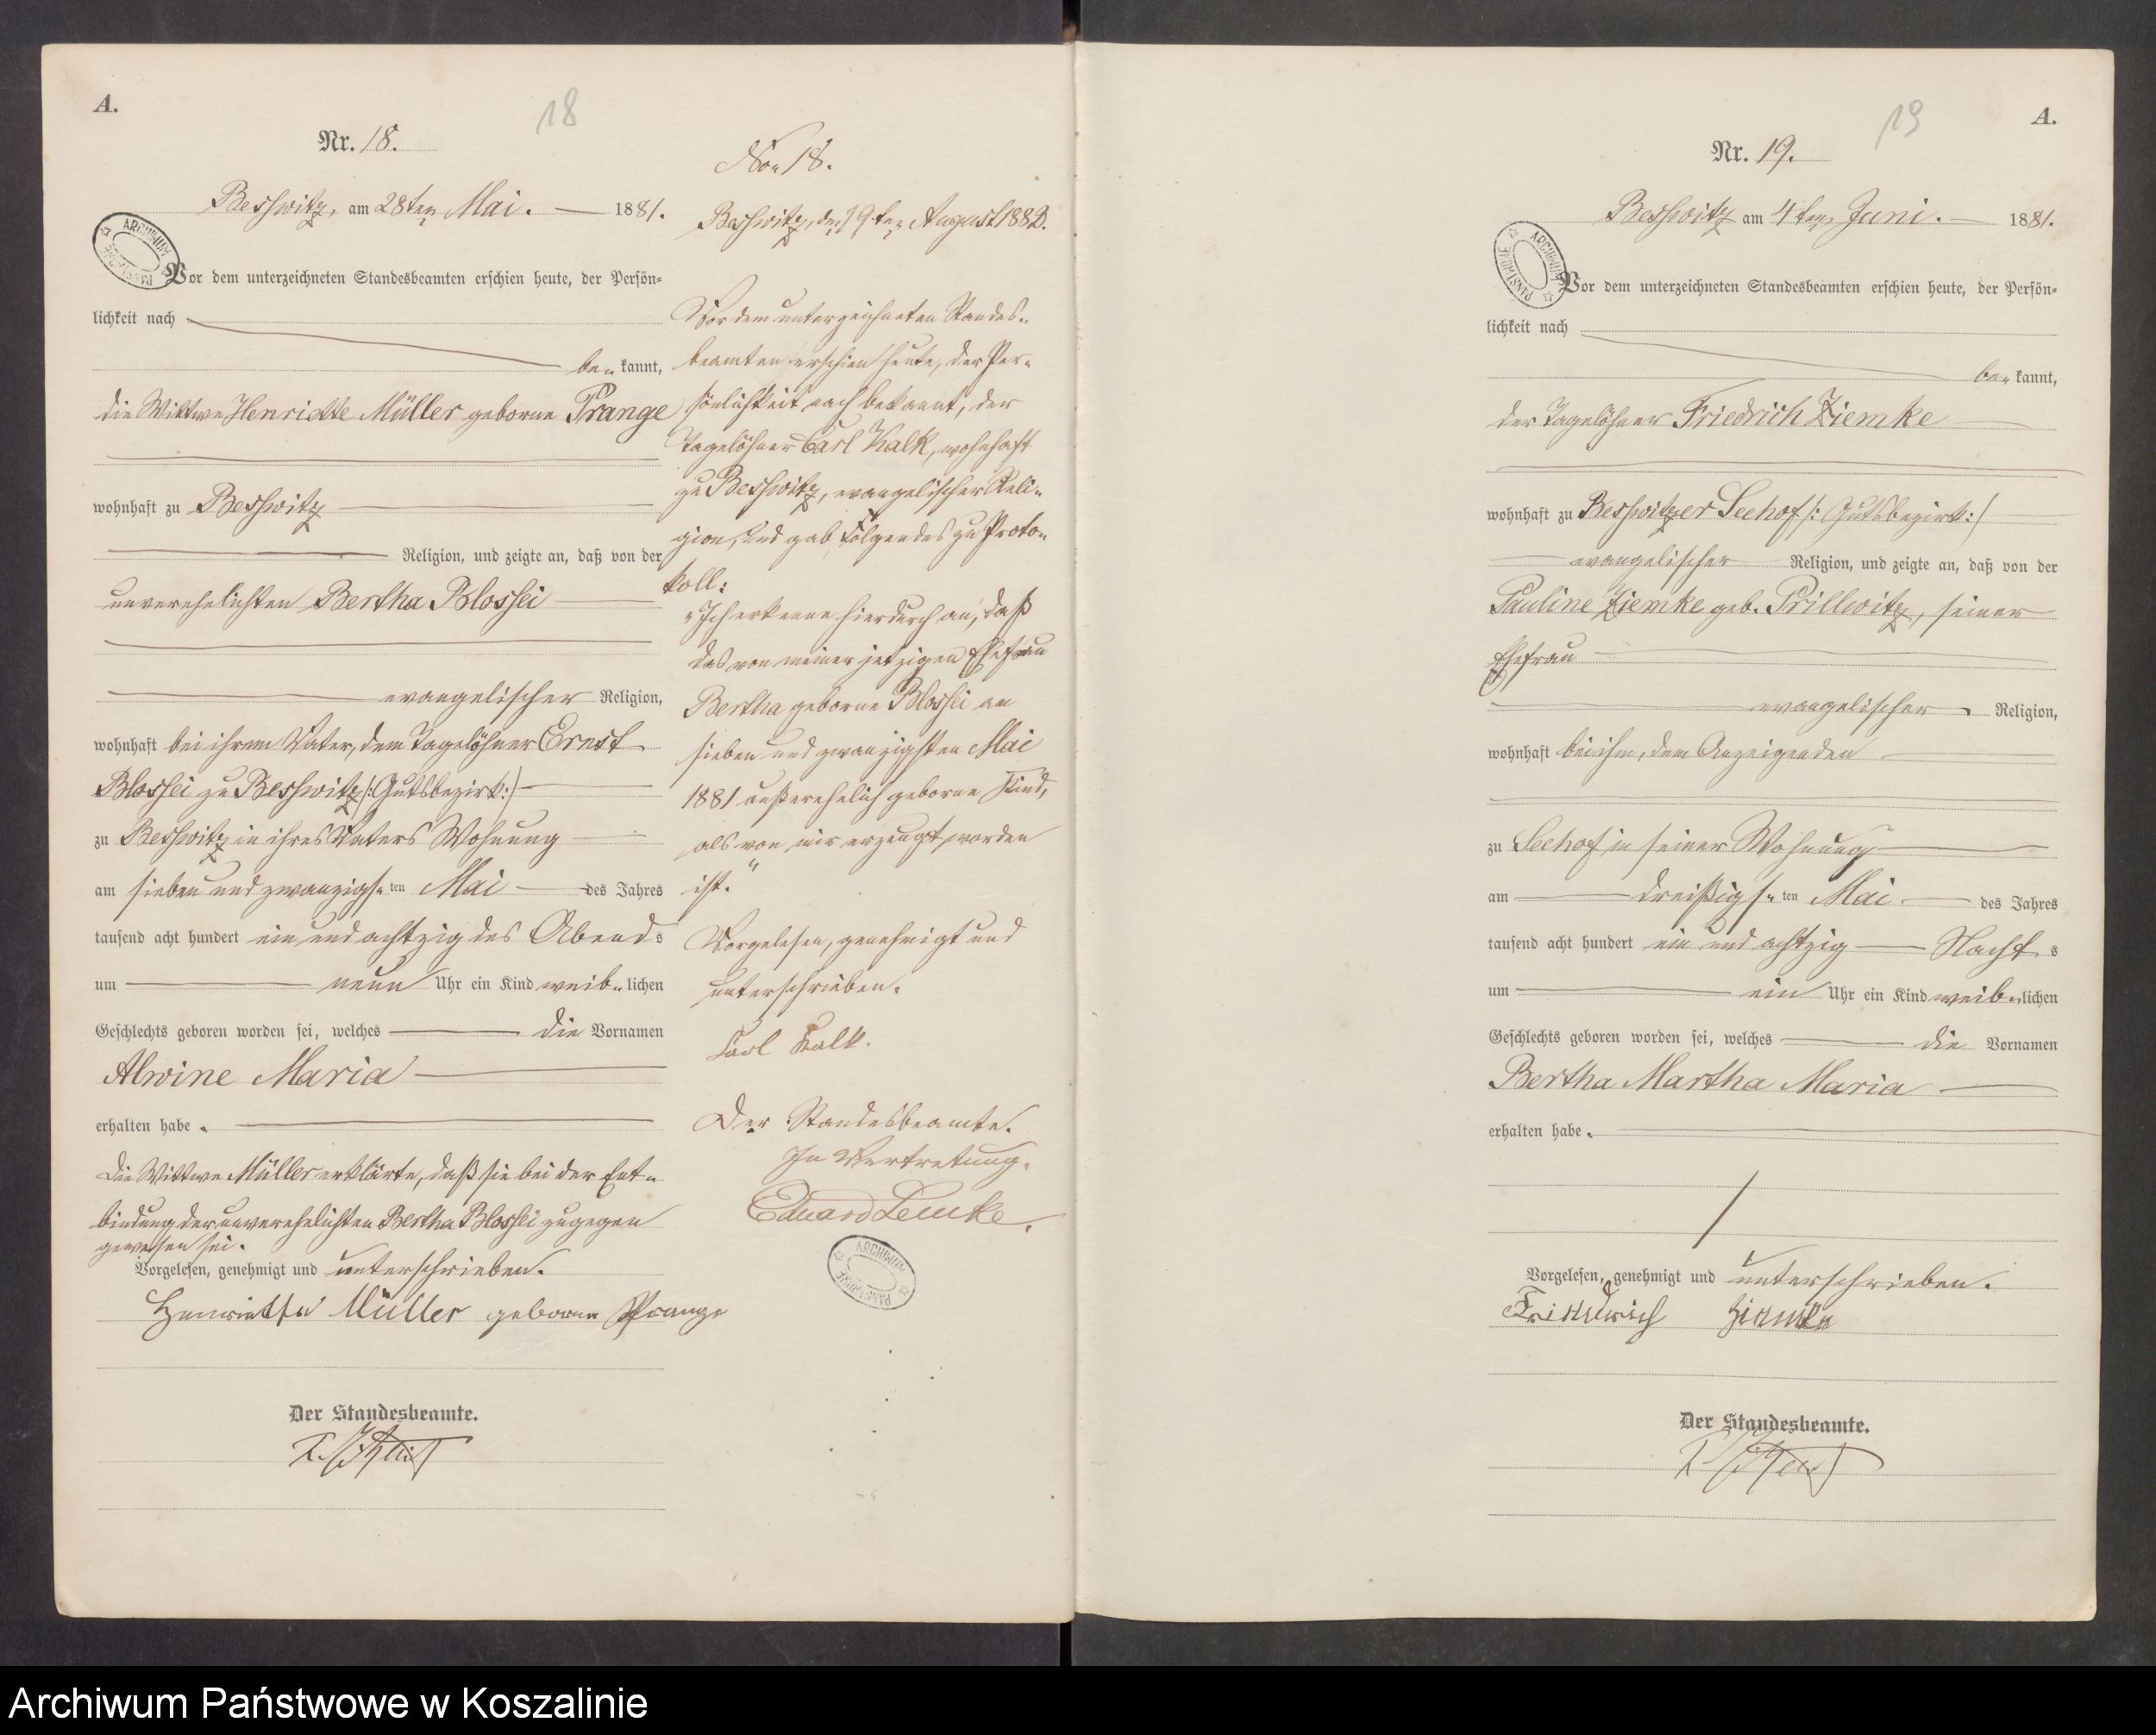 A.
18
Nr. 18.
Besswitz, am 28ten Mai. 1881.
Vor dem unterzeichneten Standesbeamten erschien heute, der Persön-
lichkeit nach
be- kannt,
die Wittwe Henriette Müller geborne Prange
wohnhaft zu Besswitz
Religion, und zeigte an, daß von der
unverehelichten Bertha Blossei
evangelischer Religion,
wohnhaft bei ihrem Vater, dem Tagelöhner Ernst
Blossei zu Besswitz /: Gutsbezirk :/
zu Besswitz in ihres Vaters Wohnung
am sieben und zwanzigs- ten Mai des Jahres
tausend acht hundert ein und achtzig des Abends
um neun Uhr ein Kind weib- lichen
Geschlechts geboren worden sei, welches die Vornamen
Alwine Maria
erhalten habe.
Die Wittwe Müller erklärte, daß sie bei der Ent-
bindung der unverehelichten Bertha Blossei zugegen
gewesen sei.
Vorgelesen, genehmigt und unterschrieben.
Henriette Müller geborne Prange
Der Standesbeamte.
No 18.
Besswitz, den 19ten August 1882.
Vor dem unterzeichneten Standes-
beamten erschien heute, der Per-
sönlichkeit nach bekannt, der
Tagelöhner Carl Kalk, wohnhaft
zu Besswitz, evangelischer Reli-
gion, und gab Folgendes zu Proto-
koll:
"Ich erkenne hierdurch an, daß
das von meiner jetzigen Ehefrau
Bertha geborne Blossei am
sieben und zwanzigsten Mai
1881 außerehelich geborne Kind,
als von mir erzeugt worden
ist."
Vorgelesen, genehmigt und
unterschrieben.
Carl Kalk.
Der Standesbeamte.
In Vertretung.
Eduard Lemke.
ARCHIWUM PAŃSTWOWE
19
A.
Nr. 19.
Besswitz am 4ten Juni. 1881.
Vor dem unterzeichneten Standesbeamten erschien heute, der Persön-
lichkeit nach
be- kannt,
der Tagelöhner Friedrich Ziemke
wohnhaft zu Besswitzer Seehof /: Gutsbezirk :/
evangelischer Religion, und zeigte an, daß von der
Pauline Ziemke geb. Prillwitz, seiner
Ehefrau
evangelischer Religion,
wohnhaft bei ihm, dem Anzeigenden
zu Seehof in seiner Wohnung
am dreißigs- ten Mai des Jahres
tausend acht hundert ein und achtzig Nachts
um ein Uhr ein Kind weib- lichen
Geschlechts geboren worden sei, welches die Vornamen
Bertha Martha Maria
erhalten habe.
Vorgelesen, genehmigt und unterschrieben.
Friedrich Ziemke
Der Standesbeamte.
Archiwum Państwowe w Koszalinie